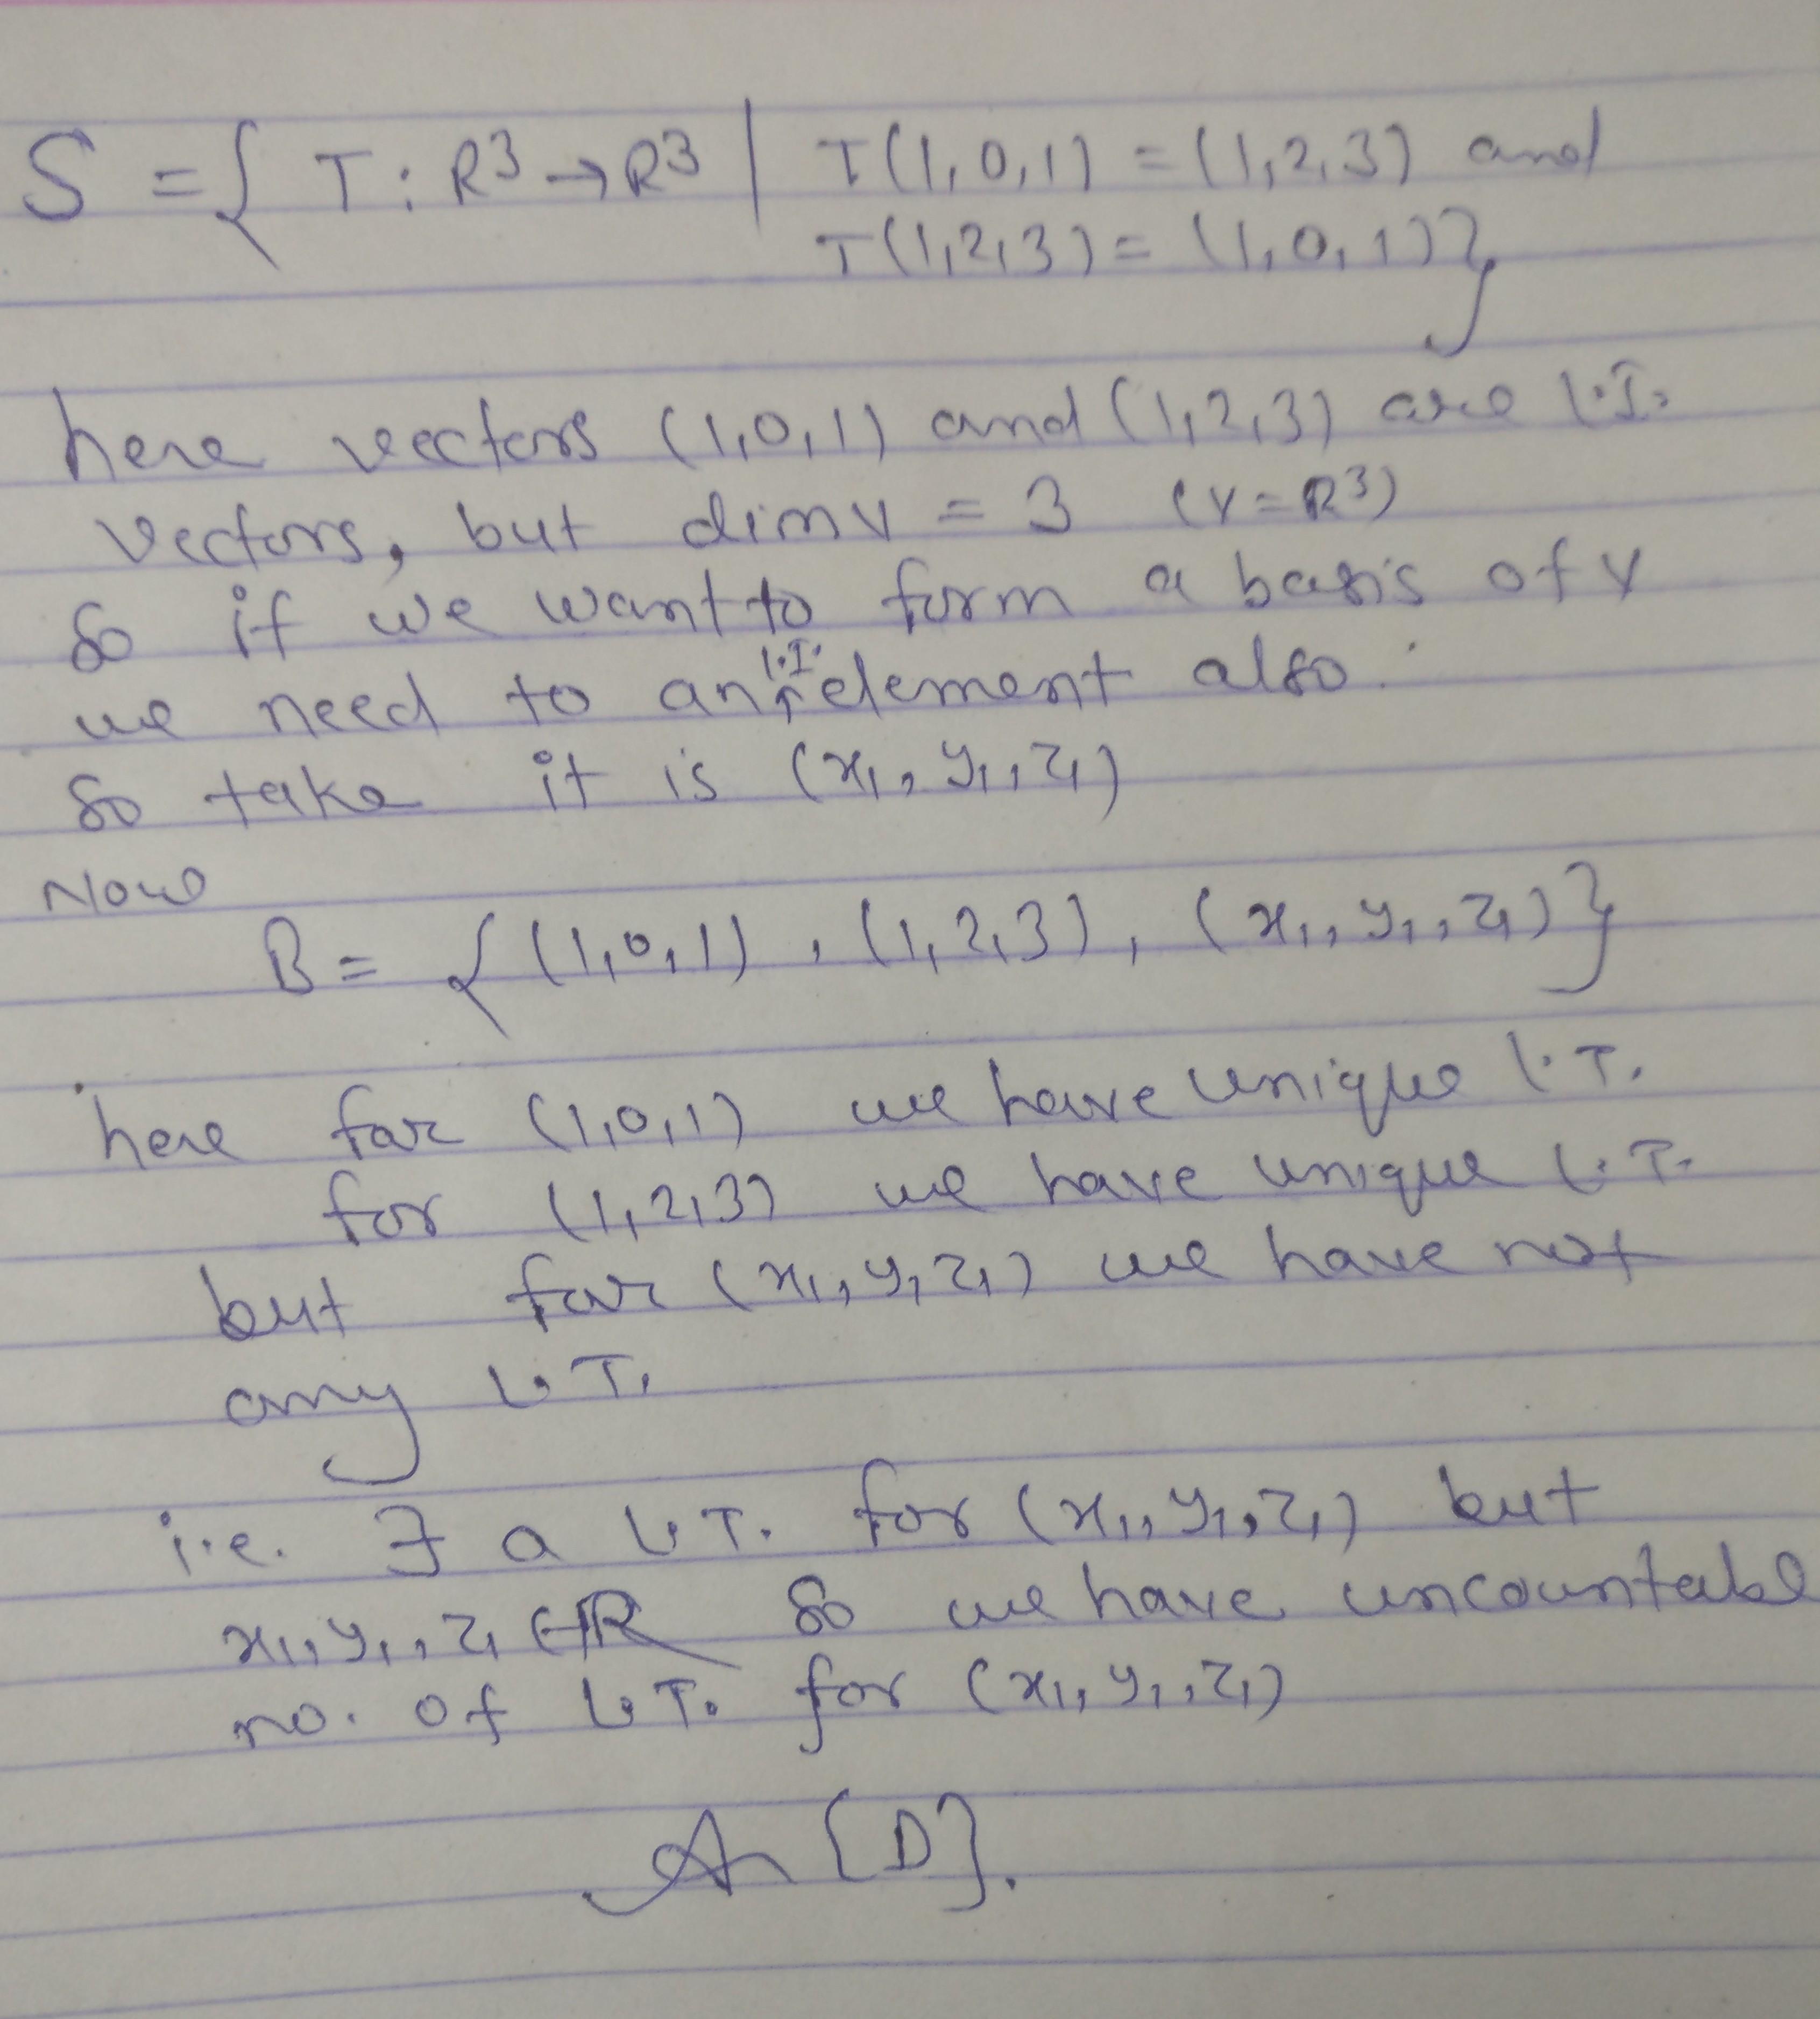 S = { T : R³ → R³ | T(1,0,1) = (1,2,3) and
T(1,2,3) = (1,0,1)}
here vectors (1,0,1) and (1,2,3) are l.I.
vectors, but dim V = 3 (V = R³)
So if we want to form a basis of V
we need to an l.I. element also.
So take it is (x₁, y₁, z₁)
Now
B = { (1,0,1) , (1,2,3), (x₁, y₁, z₁)}
here for (1,0,1) we have unique l.T.
for (1,2,3) we have unique l.T.
but for (x₁, y₁, z₁) we have not
any l.T.
i.e. ∃ a l.T. for (x₁, y₁, z₁) but
x₁, y₁, z₁ ∈ R So we have uncountabl
no. of l.T. for (x₁, y₁, z₁)
[D].